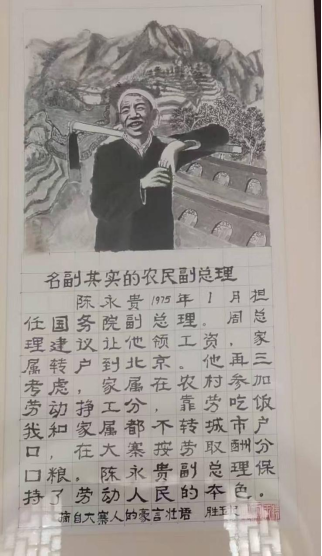 名副其实的农民副总理
陈永贵1975年1月担
任国务院副总理。周总
理建议让他领工资，家
属转户到北京。他再三
考虑，家属在农村参加
劳动挣工分，靠劳吃饭
我和家属都不转城市户
口，在大寨按劳取酬分
口粮。陈永贵副总理保
持了劳动人民的本色。
摘自大寨人的豪言壮语 胜